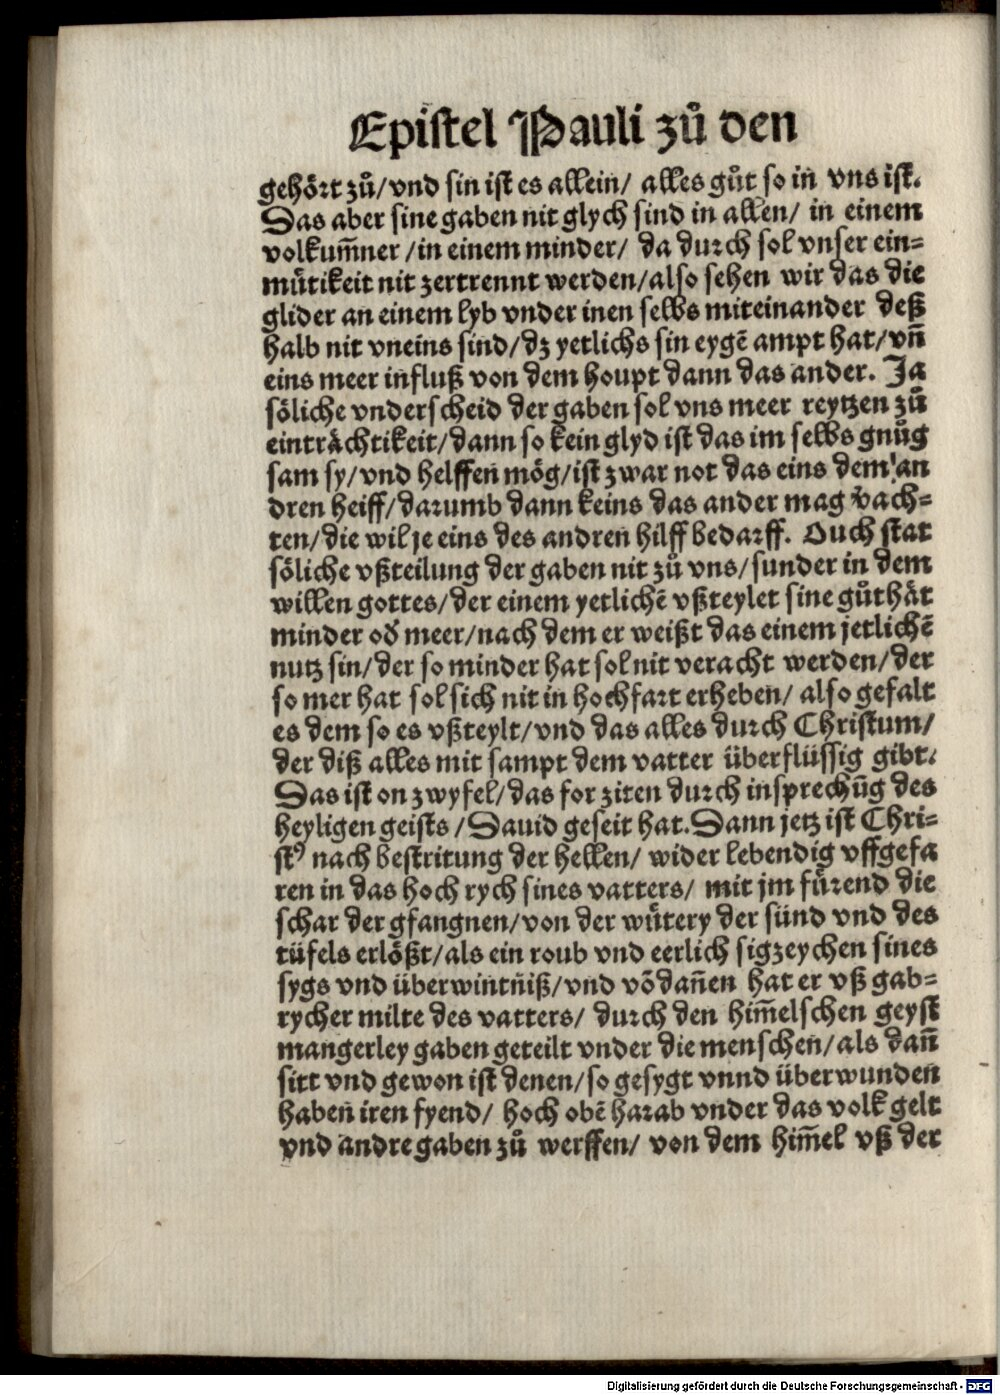 Epistel Pauli zů den
gehört zů/ vnd sin ist es allein/ alles gůt so in vns ist.
Das aber sine gaben nit glych sind in allen/ in einem
volkum̄ner /in einem minder/ da durch sol vnser ein=
můtikeit nit zertrennt werden/ also sehen wir das die
glider an einem lyb vnder inen selbs miteinander deß
halb nit vneins sind/ dz yetlichs sin eygē ampt hat/ vn̄
eins meer influß von dem houpt dann das ander. Ja
söliche vnderscheid der gaben sol vns meer reytzen zů
einträchtikeit/ dann so kein glyd ist das im selbs gnůg
sam sy/ vnd helffen mög/ ist zwar not das eins dem an
dren helff/ darumb dann keins das ander mag vach=
ten/ die wil je eins des andren hilff bedarff. Ouch stat
söliche vßteilung der gaben nit zů vns/ sunder in dem
willen gottes/ der einem yetlichē vßteylet sine gůthät
minder od̄ meer/ nach dem er weißt das einem jetlichē
nutz sin/ der so minder hat sol nit veracht werden/ der
so mer hat sol sich nit in hochfart erheben/ also gefalt
es dem so es vßteylt/ vnd das alles durch Christum/
der diß alles mit sampt dem vatter überflüssig gibt.
Das ist on zwyfel/ das for ziten durch insprechūg des
heyligen geists / Dauid geseit hat. Dann jetz ist Chri=
stꝰ nach bestritung der hellen/ wider lebendig vffgefa
ren in das hoch rych sines vatters/ mit jm fůrend die
schar der gfangnen/ von der wůtery der sünd vnd des
tüfels erlößt/ als ein roub vnd eerlich sigzeychen sines
sygs vnd überwintniß/ vnd vōdan̄en hat er vß gab=
rycher milte des vatters/ durch den him̄elschen geyst
mangerley gaben geteilt vnder die menschen/ als dan̄
sitt vnd gewon ist denen/ so gesygt vnnd überwunden
haben iren fyend/ hoch obē harab vnder das volk gelt
vnd andre gaben zů werffen/ von dem him̄el vß der
Digitalisierung gefördert durch die Deutsche Forschungsgemeinschaft - DFG